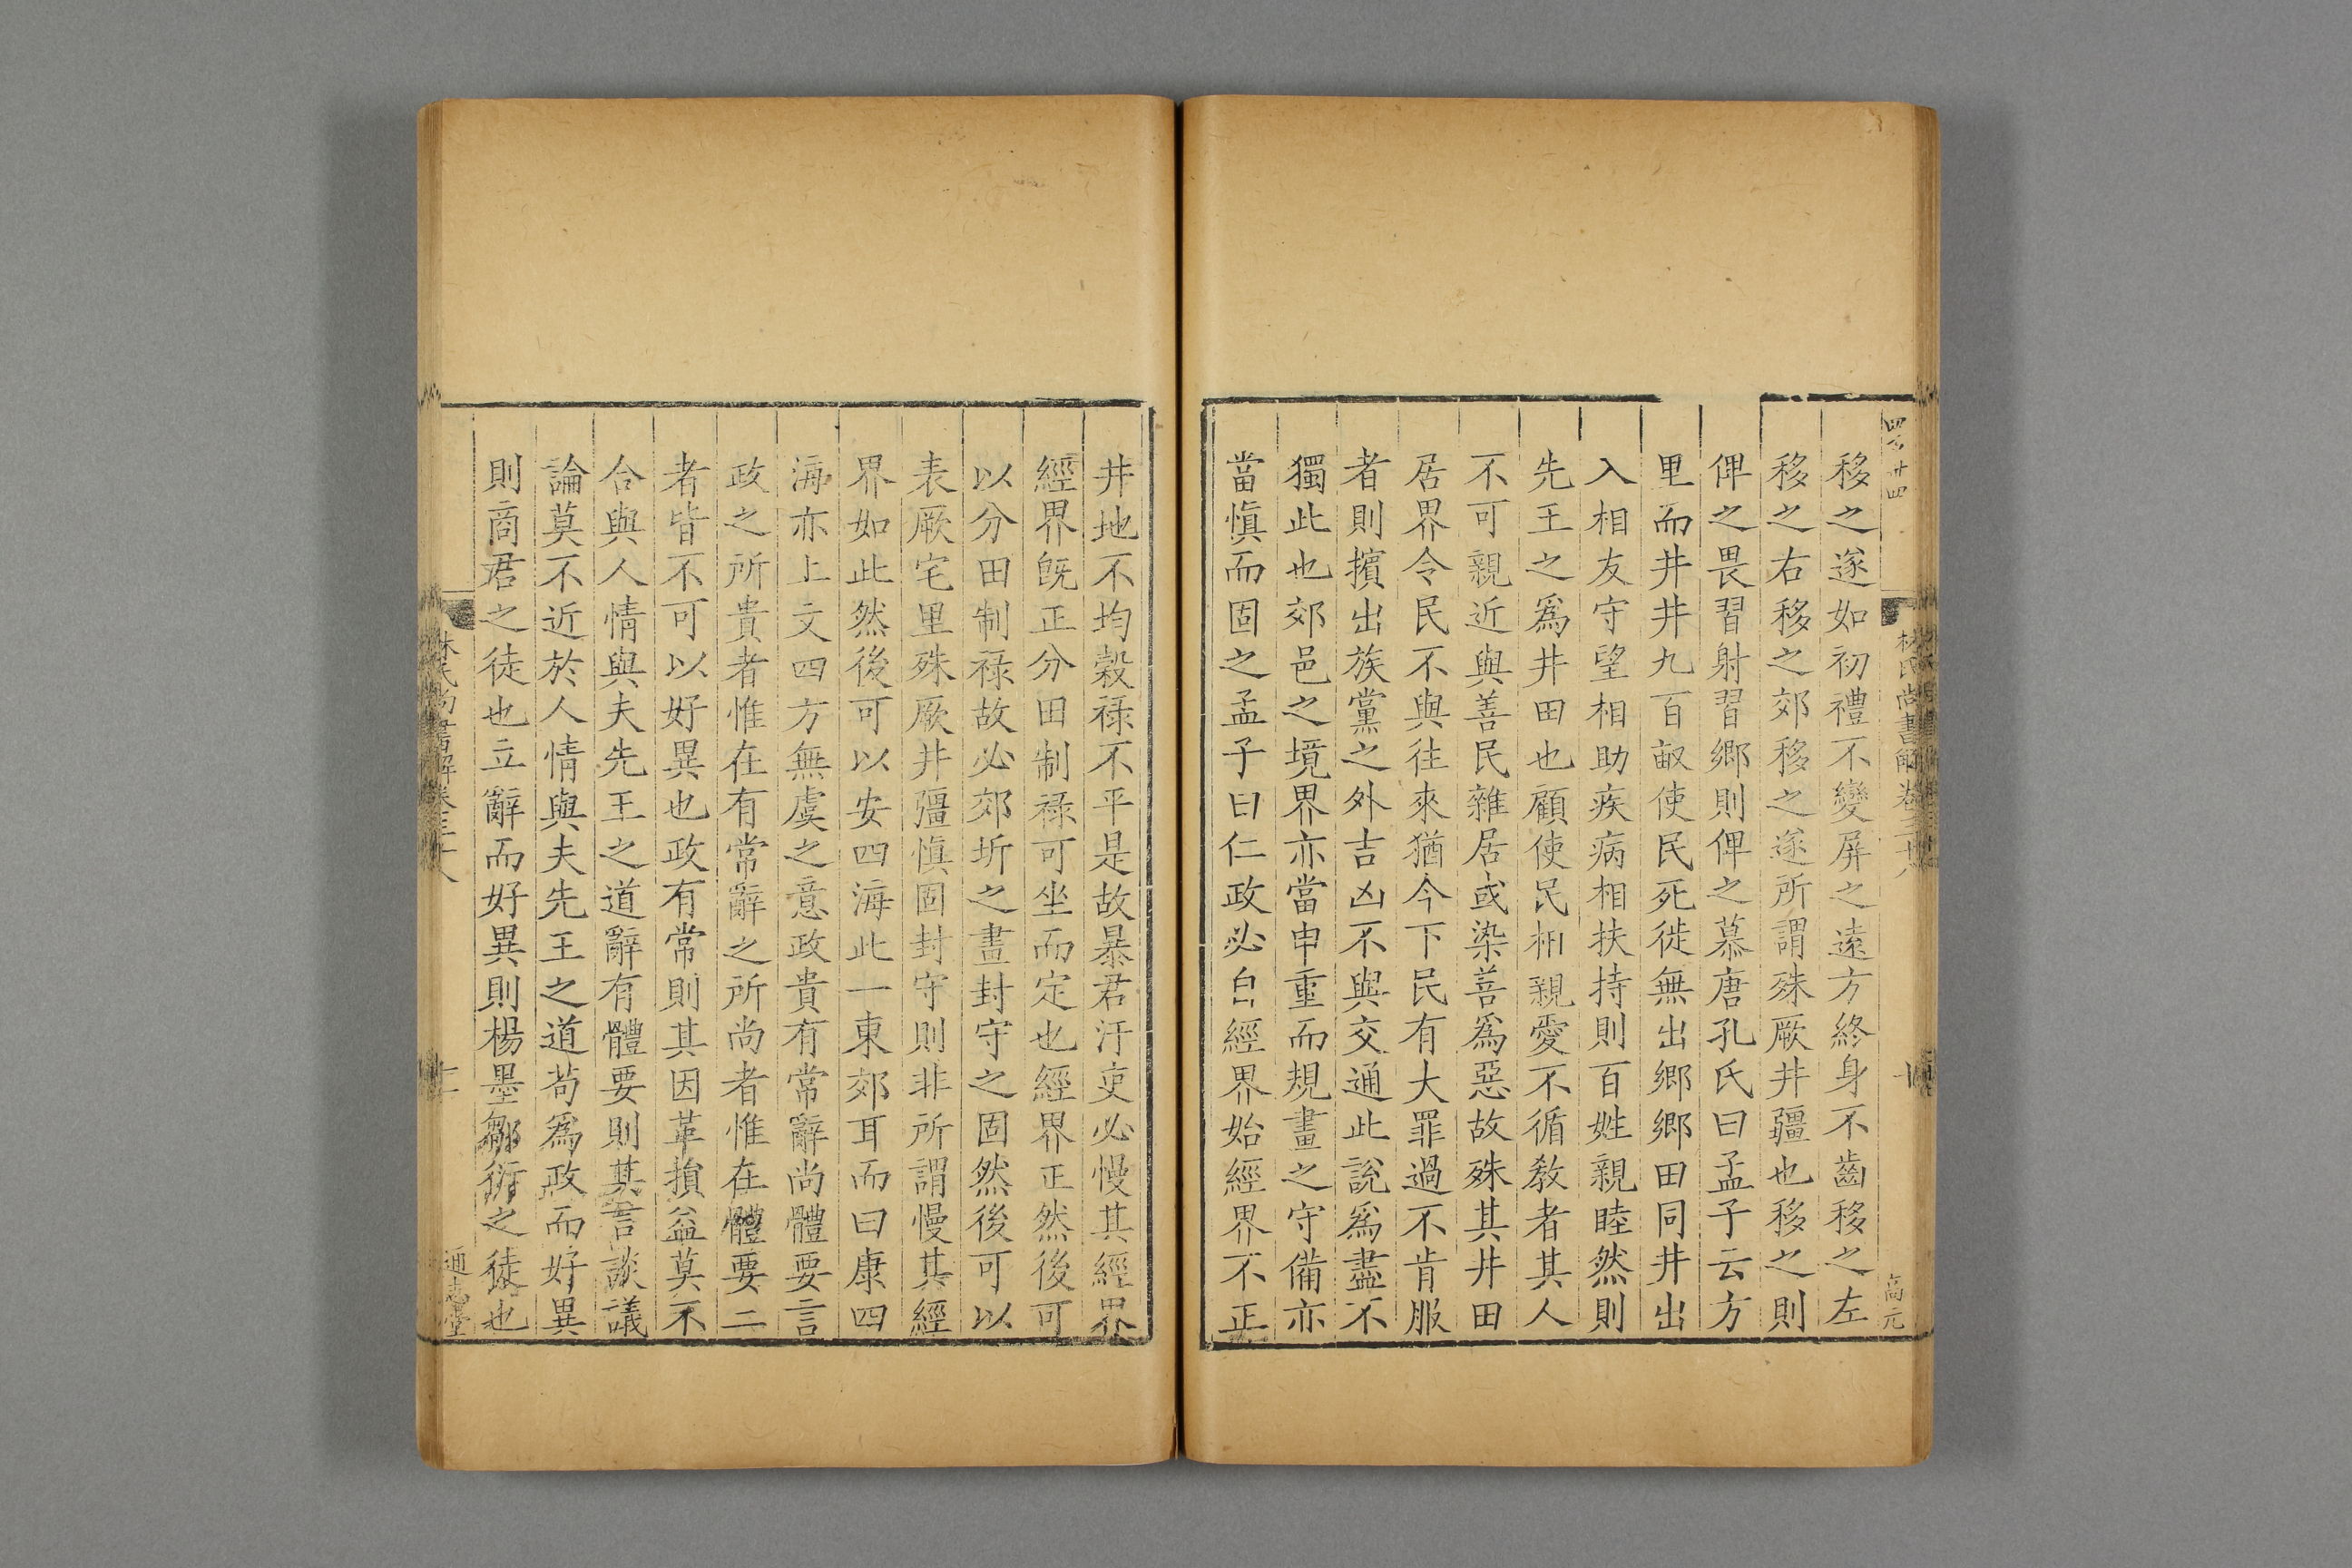 移之遂如初禮不變屏之遠方終身不齒移之左
移之右移之郊移之遂所謂殊厥井疆也移之則
俾之畏習射習鄉則俾之慕唐孔氏曰孟子云方
里而井井九百畝使民死徙無出鄉鄉田同井出
入相友守望相助疾病相扶持則百姓親睦然則
先王之爲井田也顧使民相親愛不循敎者其人
不可親近與善民雜居或染善爲惡故殊其井田
居界令民不與往來猶今下民有大罪過不肯服
者則擯出族黨之外吉凶不與交通此說爲盡不
獨此也郊邑之境界亦當申重而規畫之守備亦
當愼而固之孟子曰仁政必自經界始經界不正
林氏尚書解卷三十八
高元
井地不均穀祿不平是故暴君汙吏必慢其經界
經界旣正分田制祿可坐而定也經界正然後可
以分田制祿故必郊圻之畫封守之固然後可以
表厥宅里殊厥井疆愼固封守則非所謂慢其經
界如此然後可以安四海此一東郊耳而曰康四
海亦上文四方無虞之意政貴有常辭尚體要言
政之所貴者惟在有常辭之所尚者惟在體要二
者皆不可以好異也政有常則其因革損益莫不
合與人情與夫先王之道辭有體要則其言談議
論莫不近於人情與夫先王之道苟爲政而好異
則商君之徒也立辭而好異則楊墨鄒衍之徒也
林氏尚書解卷三十八
十一
通志堂